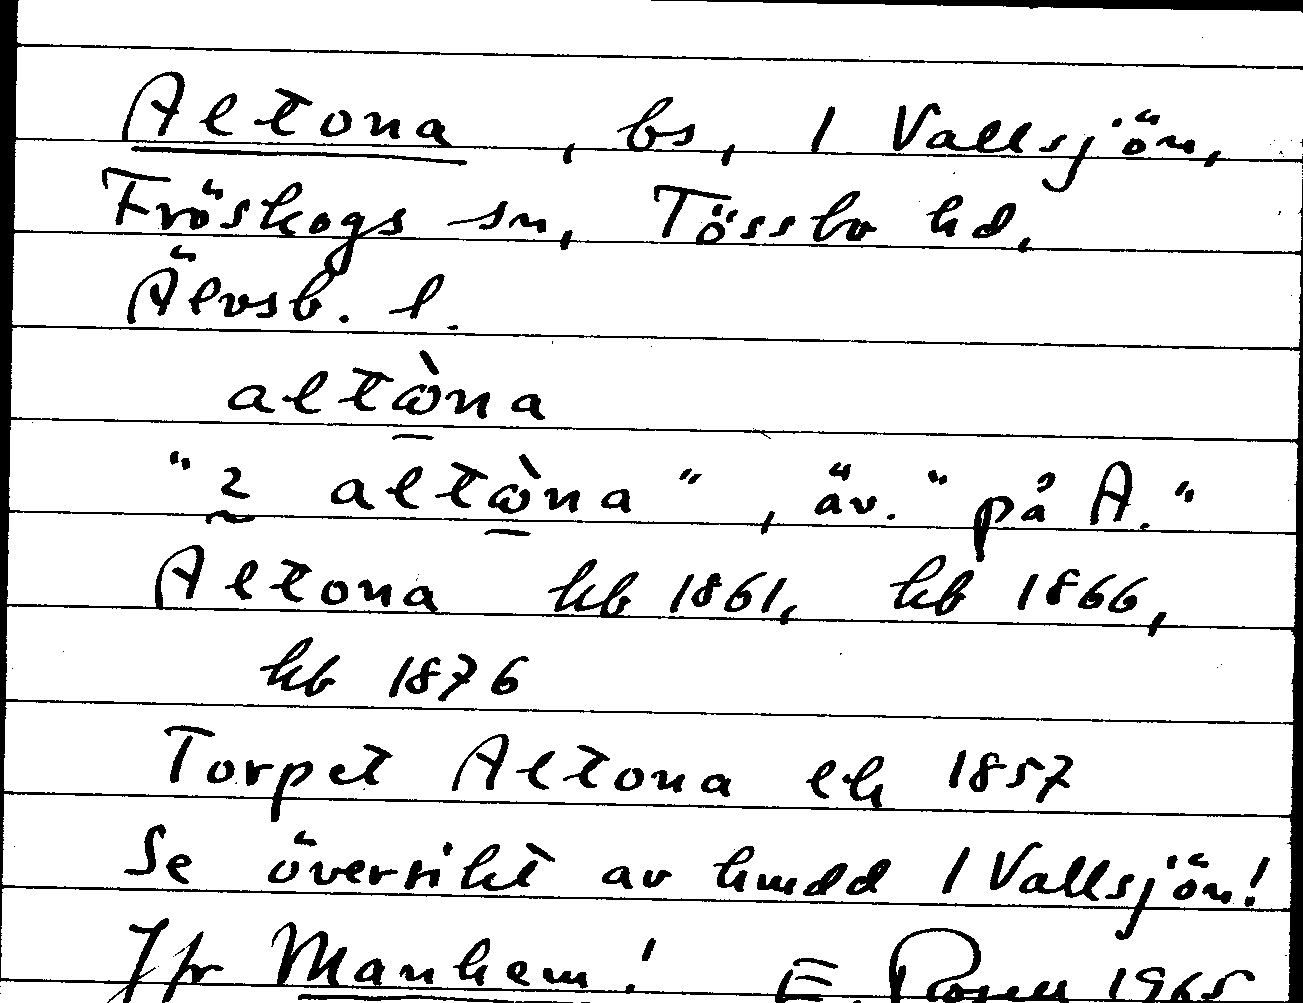 Altona, bs, 1 Vallsjön,
Fröskogs sn, Tössbo hd,
Älvsb. l.
altὼna
"2 altὼna", äv. "på A."
Altona hb 1861, hb 1866,
hb 1876
Torpet Altona eh 1857
Se översikt av hmdd 1 Vallsjön!
Jfr Manhem! E. Rosell 1965